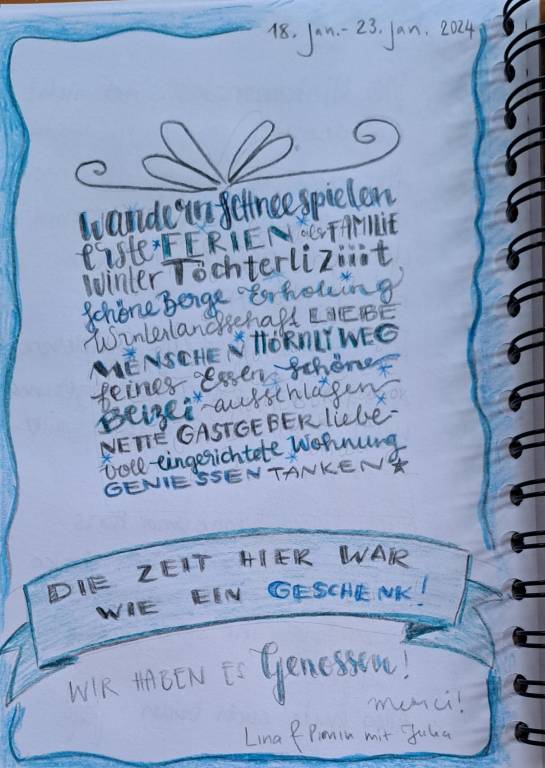 18. Jan. - 23. Jan. 2024
Wandern Schnee spielen
erste FERIEN als FAMILIE
Winter Töchterli Ziiiit
schöne Berge Erholung
Winterlandschaft LIEBE
MENSCHEN HÖRNLI WEG
feines Essen schöne
Beizei ausschlafen
NETTE GASTGEBER liebe-
voll eingerichtete Wohnung
GENIESSEN TANKEN
DIE ZEIT HIER WAR
WIE EIN GESCHENK!
WIR HABEN ES Genossen!
merci!
Lina & Pirmin mit Julia